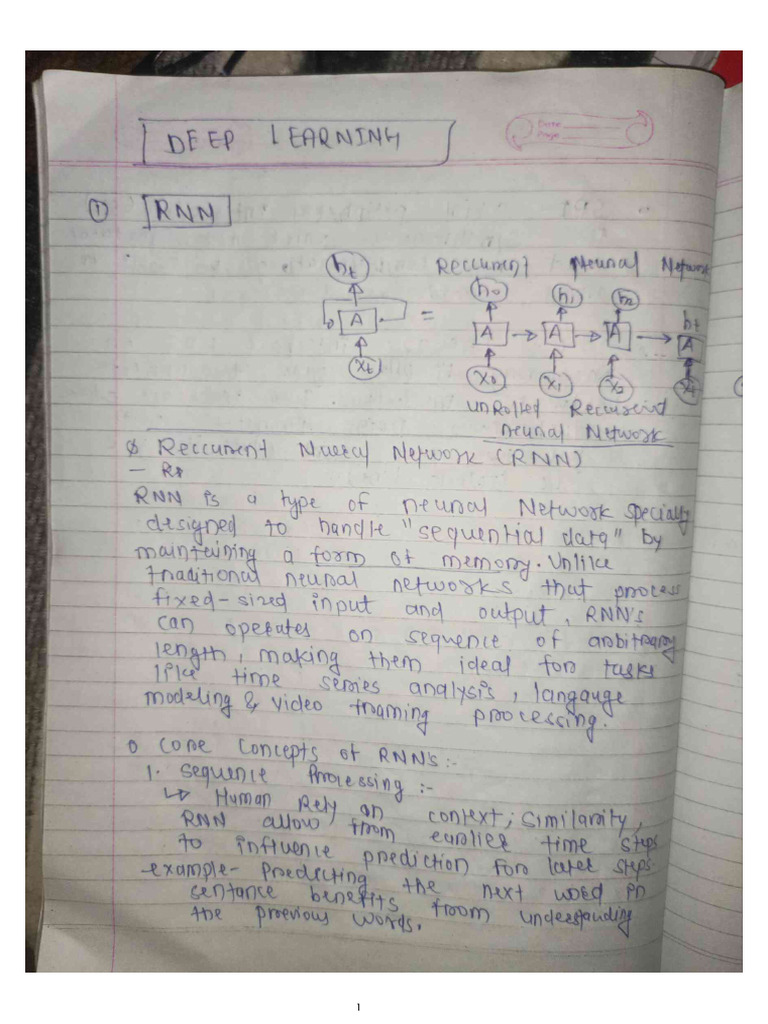 DEEP LEARNING
Date
Page
① RNN
Reccurrent Neural Network
ht
A
=
h0 h1 h2 ht
A A A ... A
xt
x0 x1 x2 xt
unRolled
neural Network
Reccurrent Nueral Network (RNN)
RNN is a type of neural Network specially
designed to handle "sequential data" by
maintaining a form of memory. Unlike
traditional neural networks that process
fixed-sized input and output, RNN's
can operates on sequence of arbitrary
length, making them ideal for tasks
like time series analysis, langauge
modeling & video framing processing.
o Core Concepts of RNN's :-
1. Sequence Processing :-
↳ Human Rely on context; similarity,
RNN allow from earlier time steps
to influence prediction for later steps
example- Predicting the next word in
sentance benefits from understanding
the previous words.
1